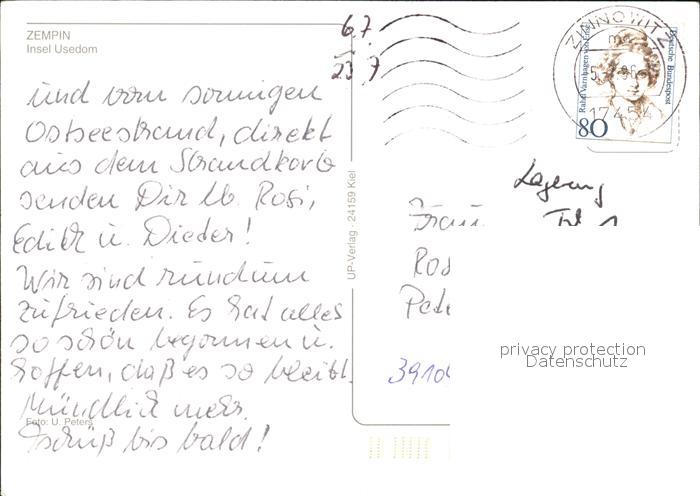 ZEMPIN
Insel Usedom
und vom sonnigen
Ostseestrand, direkt
aus dem Strandkorb
senden Dir lb. Rosi,
Edith u. Dieter!
Wir sind rundum
zufrieden. Es hat alles
so schön begonnen u.
hoffen, daß es so bleibt.
Mündlich mehr.
Foto: U. Peters
Tschüß bis bald!
UP-Verlag · 24159 Kiel
6.7.
23.7
ZINNOWITZ
17454
Rahel Varnhagen von Ense
Deutsche Bundespost
80
Lagerung
Frau
Ros
Pete
3910
privacy protection
Datenschutz